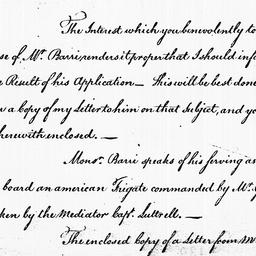 The Interest which you benevolently to
se of Mr. Barri renders it proper that I should info
e Result of his Application — this will be best done
n a copy of my Letter to him on that Subject, and yo
herewith enclosed. —
Monsr. Barri speaks of his serving as
board an american Frigate commanded by Mr.
ken by the Mediator Capt. Luttrell. —
The enclosed Copy of a Letter from M